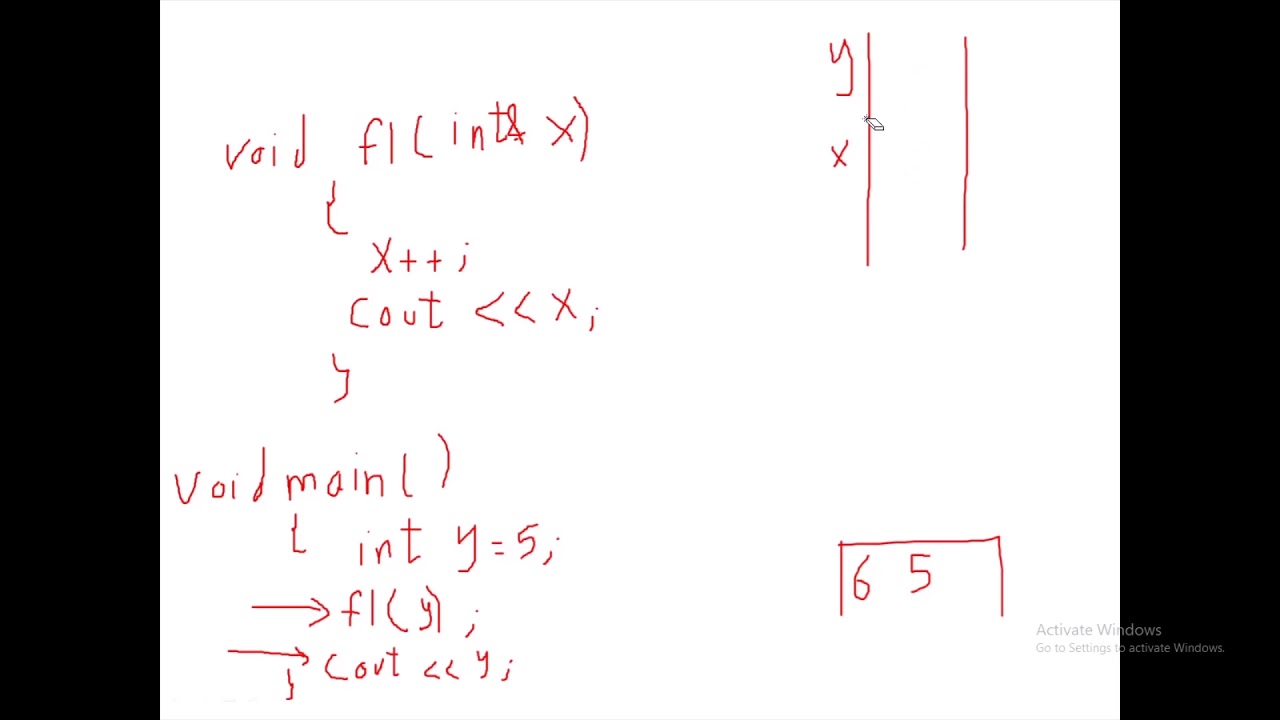 void f1(int& x)
{
x++;
cout <<x;
}
void main()
{ int y=5;
f1(y);
cout <<y;
}
y
x
6 5
Activate Windows
Go to Settings to activate Windows.